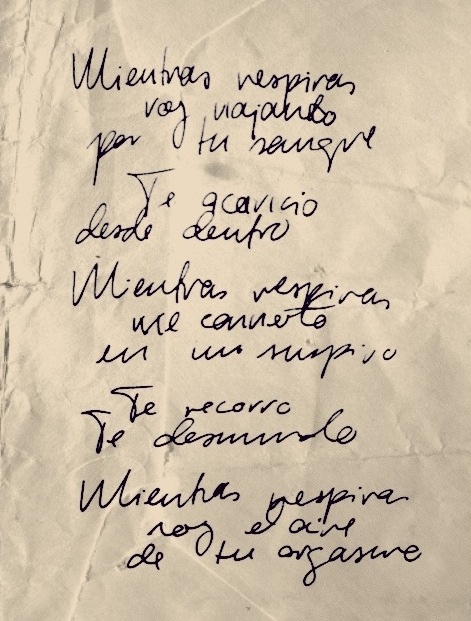 Mientras respiras
voy viajando
por tu sangre
Te acaricio
desde dentro
Mientras respiras
me convierto
en un suspiro
Te recorro
Te desnudo
Mientras respiras
soy el aire
de tu